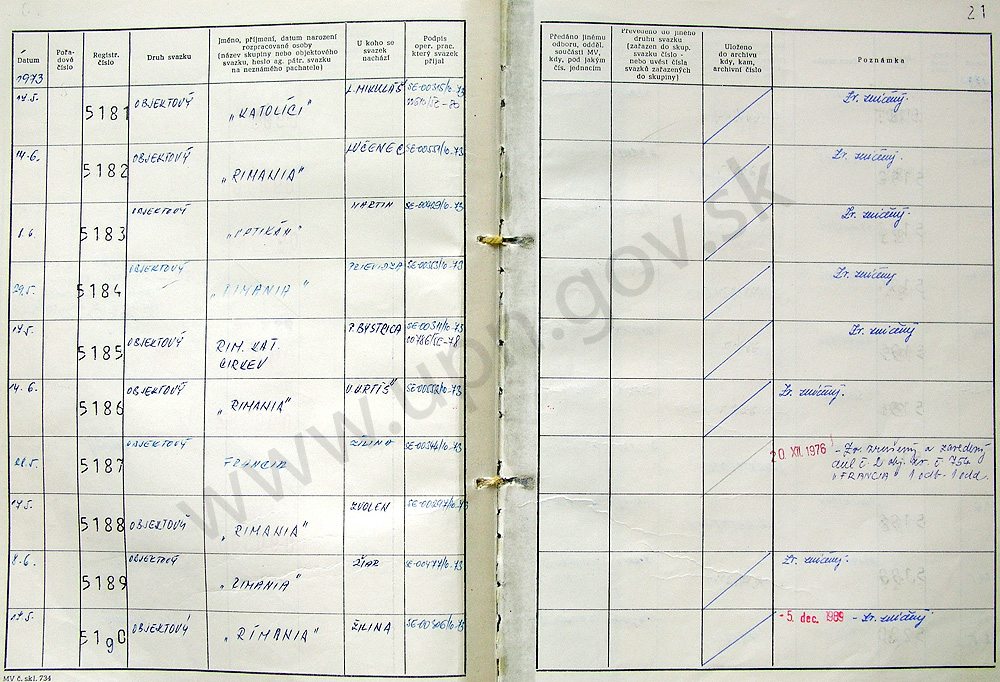 21
Datum
Pořadové číslo
Registr. číslo
Druh svazku
Jméno, příjmení, datum narození
rozpracované osoby
(název skupiny nebo objektového
svazku, heslo ag. pátr. svazku
na neznámého pachatele)
U koho se
svazek
nachází
Podpis
oper. prac.
který svazek
přijal
Předáno jinému
odboru, odděl.
součásti MV,
kdy, pod jakým
čís. jednacím
Převedeno do jiného
druhu svazku
(zařazen do skup.
svazku číslo -
nebo uvést čísla
svazků zařazených
do skupiny)
Uloženo
do archivu
kdy, kam,
archivní číslo
Poznámka
1973
17.5. 5181 OBJEKTOVÝ „KATOLÍCI" L. MIKULÁŠ Zv. zničený.
14.6. 5182 OBJEKTOVÝ „RIMANIA" LUČENEC SE-00551/0-73 Zv. zničený.
5183 OBJEKTOVÝ MARTIN SE-00429/0-73 Zv. zničený.
29.5. 5184 OBJEKTOVÝ „RIMANIA" PRIEVIDZA SE-00353/0-73 Zv. zničený
17.5. 5185 OBJEKTOVÝ RIM. KAT. CIRKEV P. BYSTRICA SE-00311/0-73 Zv. zničený
14.6. 5186 OBJEKTOVÝ „RIMANIA" V. KRTÍŠ SE-00552/0-73 Zv. zničený.
5187 OBJEKTOVÝ FRANCIA ŽILINA SE-00344/0-73 20. XII. 1976 - Zv. zrušený a zavedený
ako č. 2 obj. zv. č. 754
„FRANCIA" 1 odb. 1 odd.
17.5. 5188 OBJEKTOVÝ „RIMANIA" ZVOLEN
8.6. 5189 OBJEKTOVÝ „RIMANIA" ŽIAR SE-00477/0-73 Zv. zničený.
17.5. 5190 OBJEKTOVÝ „RÍMANIA" ŽILINA SE-00306/0-73 - 5. dec. 1989 - Zv. zničený
MV č. skl. 734
www.upn.gov.sk